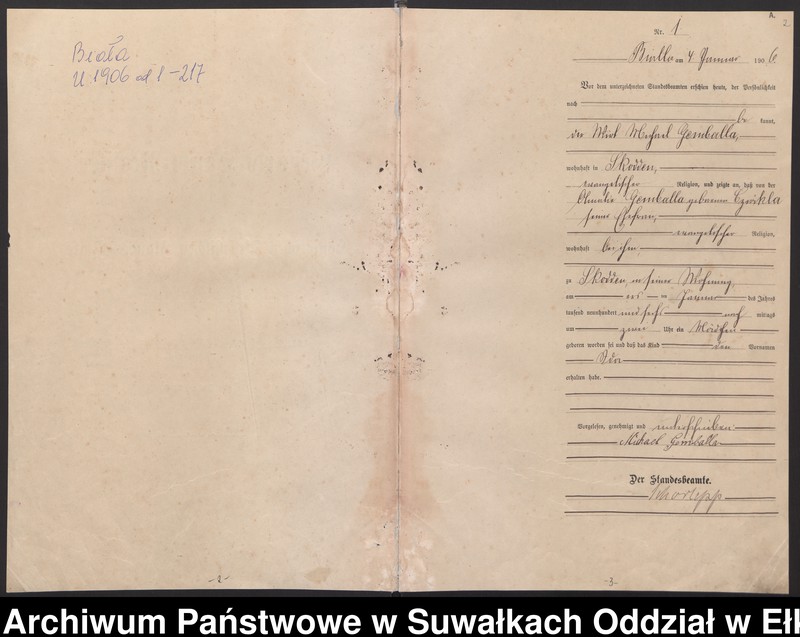 Biała
U 1906 od 1-217
A.
2
Nr. 1
Bialla am 4 Januar 1906
Vor dem unterzeichneten Standesbeamten erschien heute, der Persönlichkeit
nach
be kannt,
der Wirt Michael Gemballa,
wohnhaft in Skodden,
evangelischer Religion, und zeigte an, daß von der
Gemballa geborenen
seiner Ehefrau,
evangelischer Religion,
wohnhaft bei ihm
zu Skodden in seiner Wohnung,
am Januar des Jahres
tausend neunhundert und sechs nach mittags
um zwei Uhr ein Mädchen
geboren worden sei und daß das Kind den Vornamen
Ida
erhalten habe.
Vorgelesen, genehmigt und unterschrieben.
Michael Gemballa
Der Standesbeamte.
-2-
-3-
Archiwum Państwowe w Suwałkach Oddział w Eł